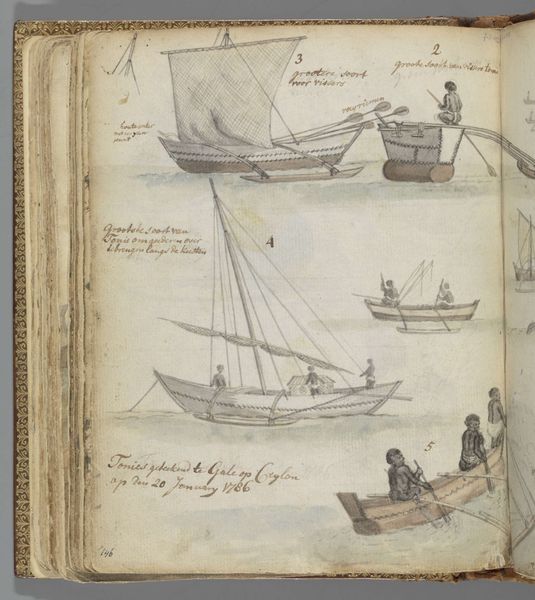 3
grootere soort
voor vissers
2
groote soort van visscherton
roeyriemen
houte anker
met een
Grootste soort van
Tonie om goederen over
te brengen langs de kusten
4
5
Tonies geteekend te Gale op Ceylon
op den 20 January 1786
146